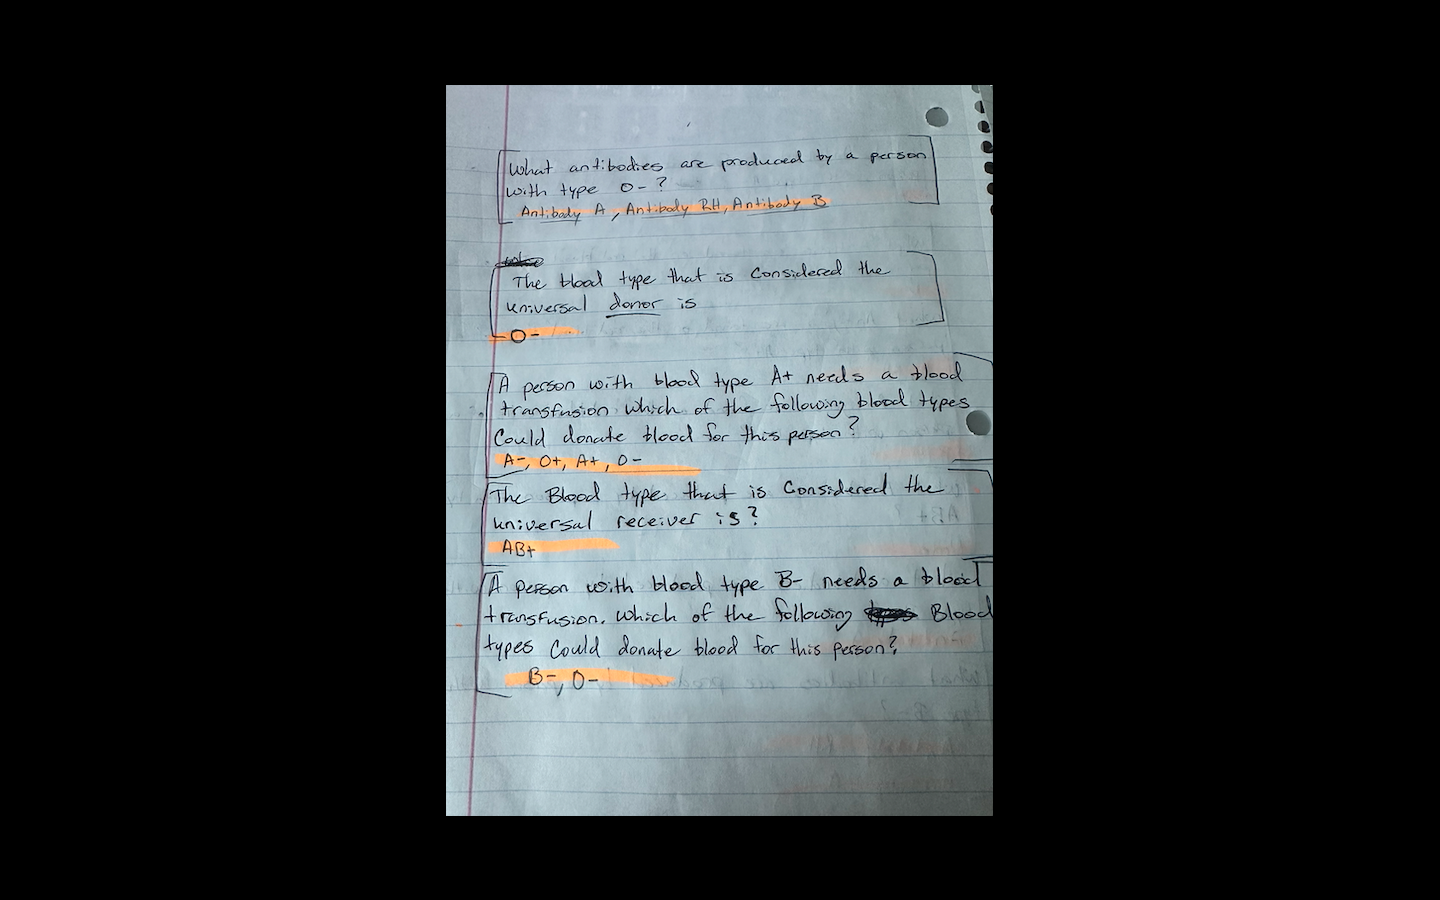 What antibodies are produced by a person
with type O- ?
Antibody A, Antibody RH, Antibody B
The blood type that is Considered the
universal donor is
O-
A person with blood type A+ needs a blood
transfusion which of the following blood types
Could donate blood for this person?
A-, O+, A+, O-
The Blood type that is Considered the
universal receiver is?
AB+
A person with blood type B- needs a blood
transfusion. which of the following Blood
types Could donate blood for this person?
B-, O-